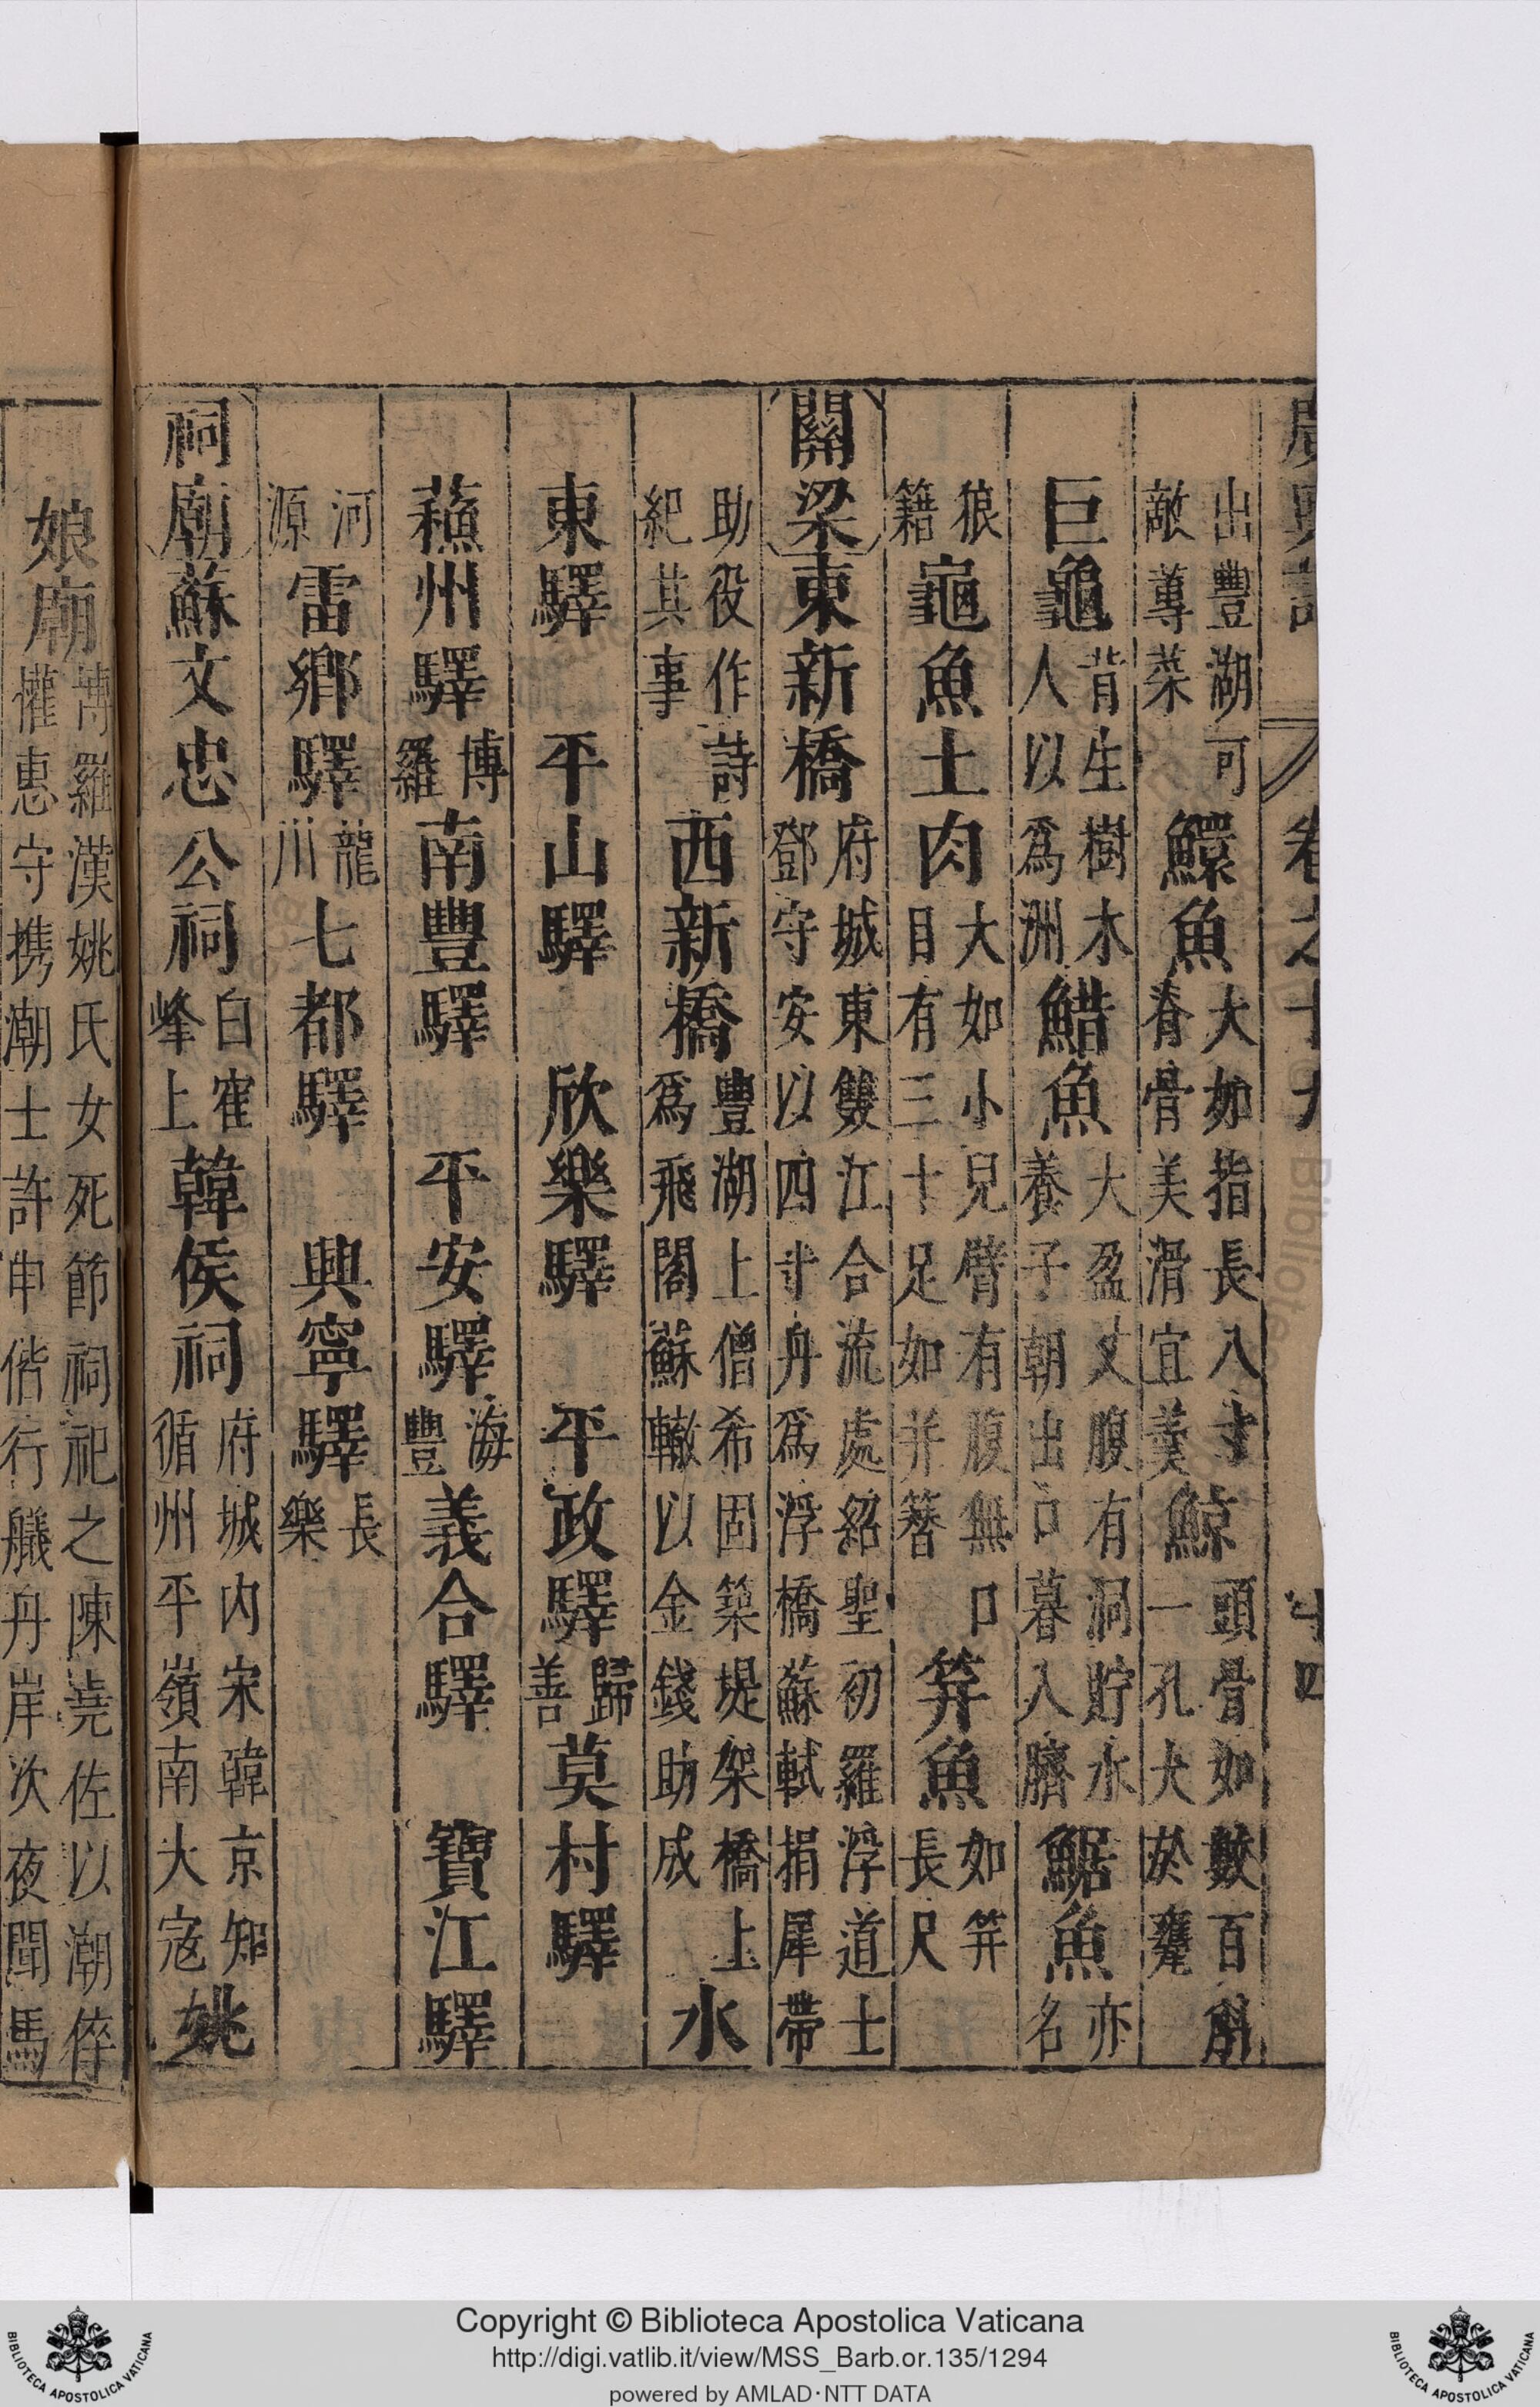 廣輿記 卷之十九 十四
出豐湖可敵蓴菜 鱞魚 大如指長八寸脊骨美滑宜羹 鯨 頭骨如數百斛一孔大於甕
巨龜 背生樹木人以爲洲 鯌魚 大盈丈腹有洞貯水養子朝出口暮入臍 鋸魚 亦名
狼籍 龜魚 土肉 大如小兒臂有腹無口目有三十足如并簪 笄魚 如笄長尺
關梁 東新橋 府城東雙江合流處紹聖初羅浮道士鄧守安以四十舟爲浮橋蘇軾捐犀帶
助役作詩紀其事 西新橋 豐湖上僧希固築堤架橋上爲飛閣蘇轍以金錢助成 水
東驛 平山驛 欣樂驛 平政驛 歸善 莫村驛
蘓州驛 博羅 南豐驛 平安驛 海豐 義合驛 寶江驛
河源 雷鄉驛 龍川 七都驛 興寧驛 長樂
祠廟 蘇文忠公祠 白寉峰上 韓侯祠 府城内宋韓京知循州平嶺南大宼 姚
娘廟 博羅漢姚氏女死節祠祀之陳堯佐以潮倅權惠守携潮士許申偕行艤丹岸次夜聞馬
Copyright © Biblioteca Apostolica Vaticana
http://digi.vatlib.it/view/MSS_Barb.or.135/1294
powered by AMLAD·NTT DATA
BIBLIOTECA APOSTOLICA VATICANA
BIBLIOTECA APOSTOLICA VATICANA